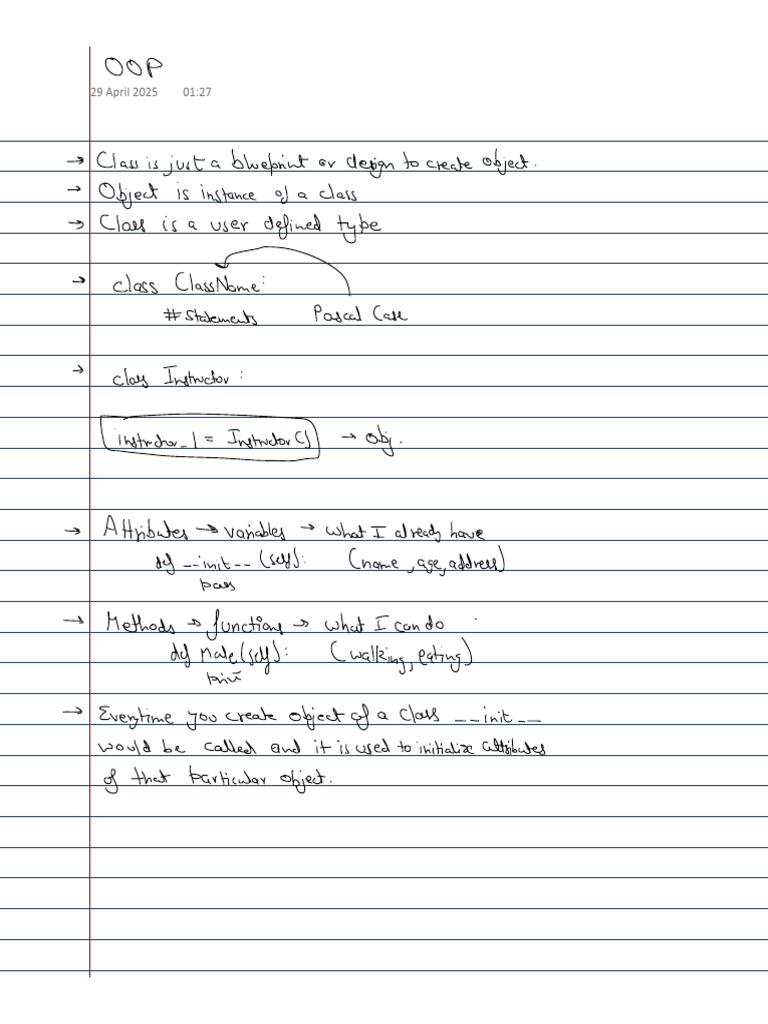 OOP
29 April 2025 01:27
→ Class is just a blueprint or design to create object.
→ Object is instance of a class
→ Class is a user defined type
→ class ClassName:
#statements Pascal Case
→ class Instructor:
instructor_1 = Instructor() → obj.
→ Attributes → variables → what I already have
def __init__(self): (name, age, address)
pass
→ Methods → functions → what I can do
def (self): (walking, eating)
print
→ Everytime you create object of a class __init__
would be called and it is used to initialize attributes
of that particular object.